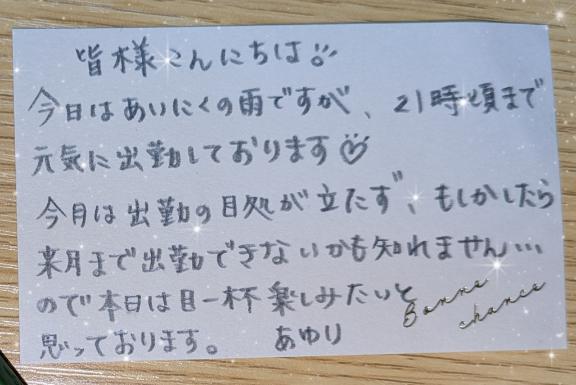 皆様こんにちは
今日はあいにくの雨ですが、21時頃まで
元気に出勤しております♡
今月は出勤の目処が立たず、もしかしたら
来月まで出勤できないかも知れません…
ので本日は目一杯楽しみたいと
思っております。 あゆり
Bonne
chance